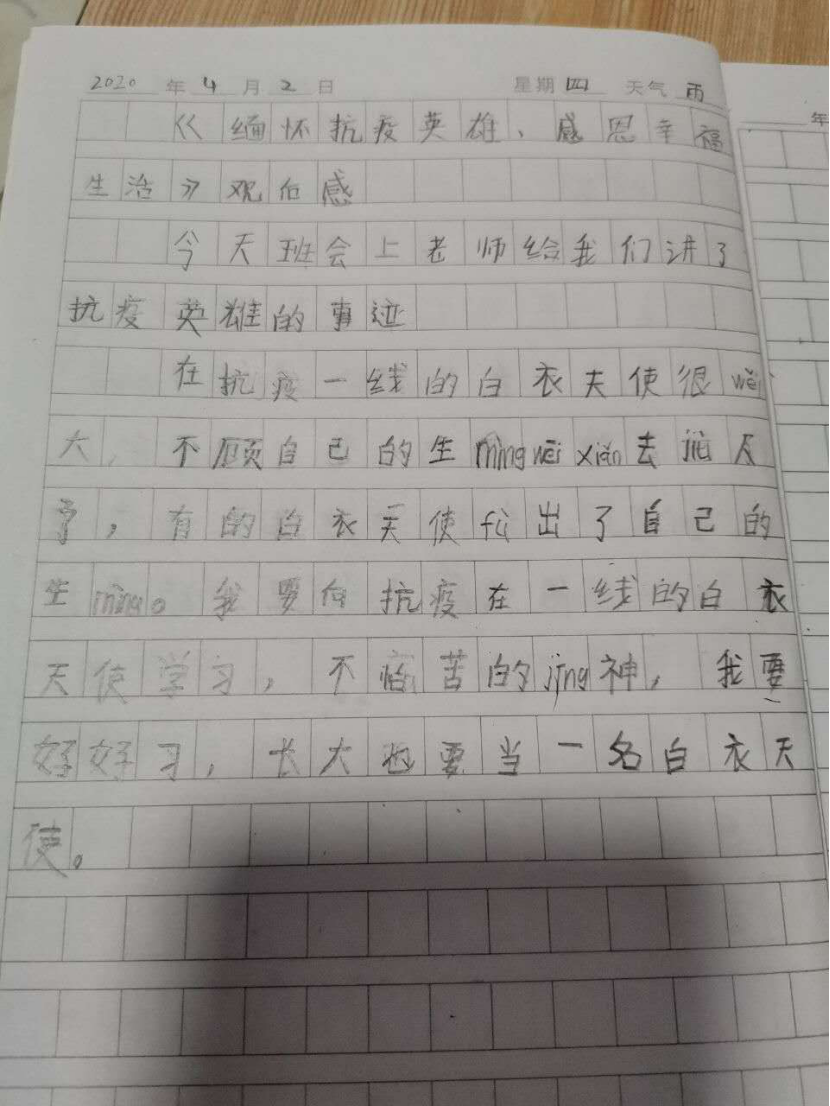 2020年4月2日 星期四 天气雨
《缅怀抗疫英雄、感恩幸福
生活》观后感
今天班会上老师给我们讲了
抗疫英雄的事迹
在抗疫一线的白衣天使很wěi
大,不顾自己的生mìngwēixiǎn去jiù人
了,有的白衣天使fù出了自己的
生mìng。我要向抗疫在一线的白衣
天使学习,不怕苦的jīng神,我要
好好习,长大也要当一名白衣天
使。
年